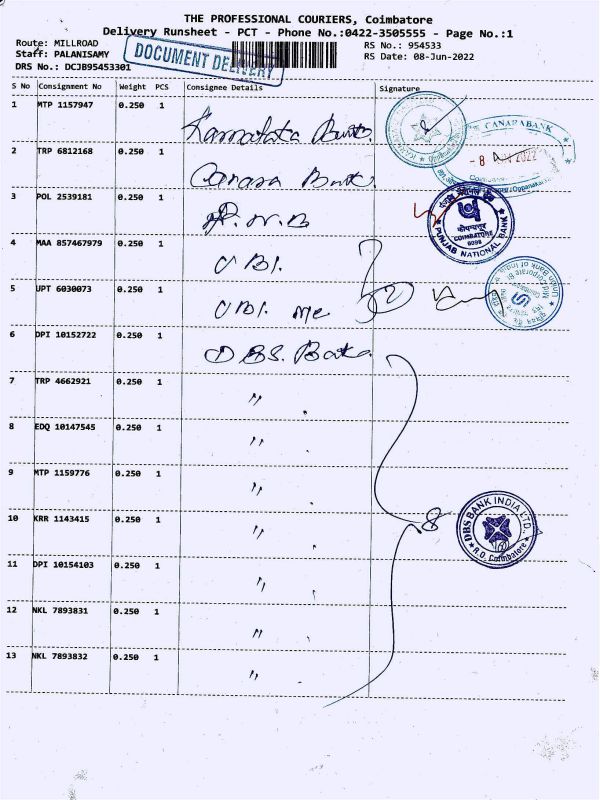 THE PROFESSIONAL COURIERS, Coimbatore
Delivery Runsheet - PCT - Phone No.:0422-3505555 - Page No.:1
Route: MILLROAD
RS No.: 954533
Staff: PALANISAMY
RS Date: 08-Jun-2022
DRS No.: DCJB95453301
DOCUMENT DELIVERY
S No Consignment No Weight PCS Consignee Details Signature
1 MTP 1157947 0.250 1
Karnataka Bank.
2 TRP 6812168 0.250 1
Canara Bank.
CANARA BANK
- 8 2022
3 POL 2539181 0.250 1
P.N.B
कोयम्बत्तूर
COIMBATORE
6098
PUNJAB NATIONAL BANK
4 MAA 857467979 0.250 1
UBI.
5 UPT 6030073 0.250 1
UBI. me
Union Bank of India
6 DPI 10152722 0.250 1
DBS. Bank
7 TRP 4662921 0.250 1
"
8 EDQ 10147545 0.250 1
"
9 MTP 1159776 0.250 1
"
10 KRR 1143415 0.250 1
"
8
DBS BANK INDIA LTD.,
R.O. Coimbatore
11 DPI 10154103 0.250 1
"
12 NKL 7893831 0.250 1
"
13 NKL 7893832 0.250 1
"